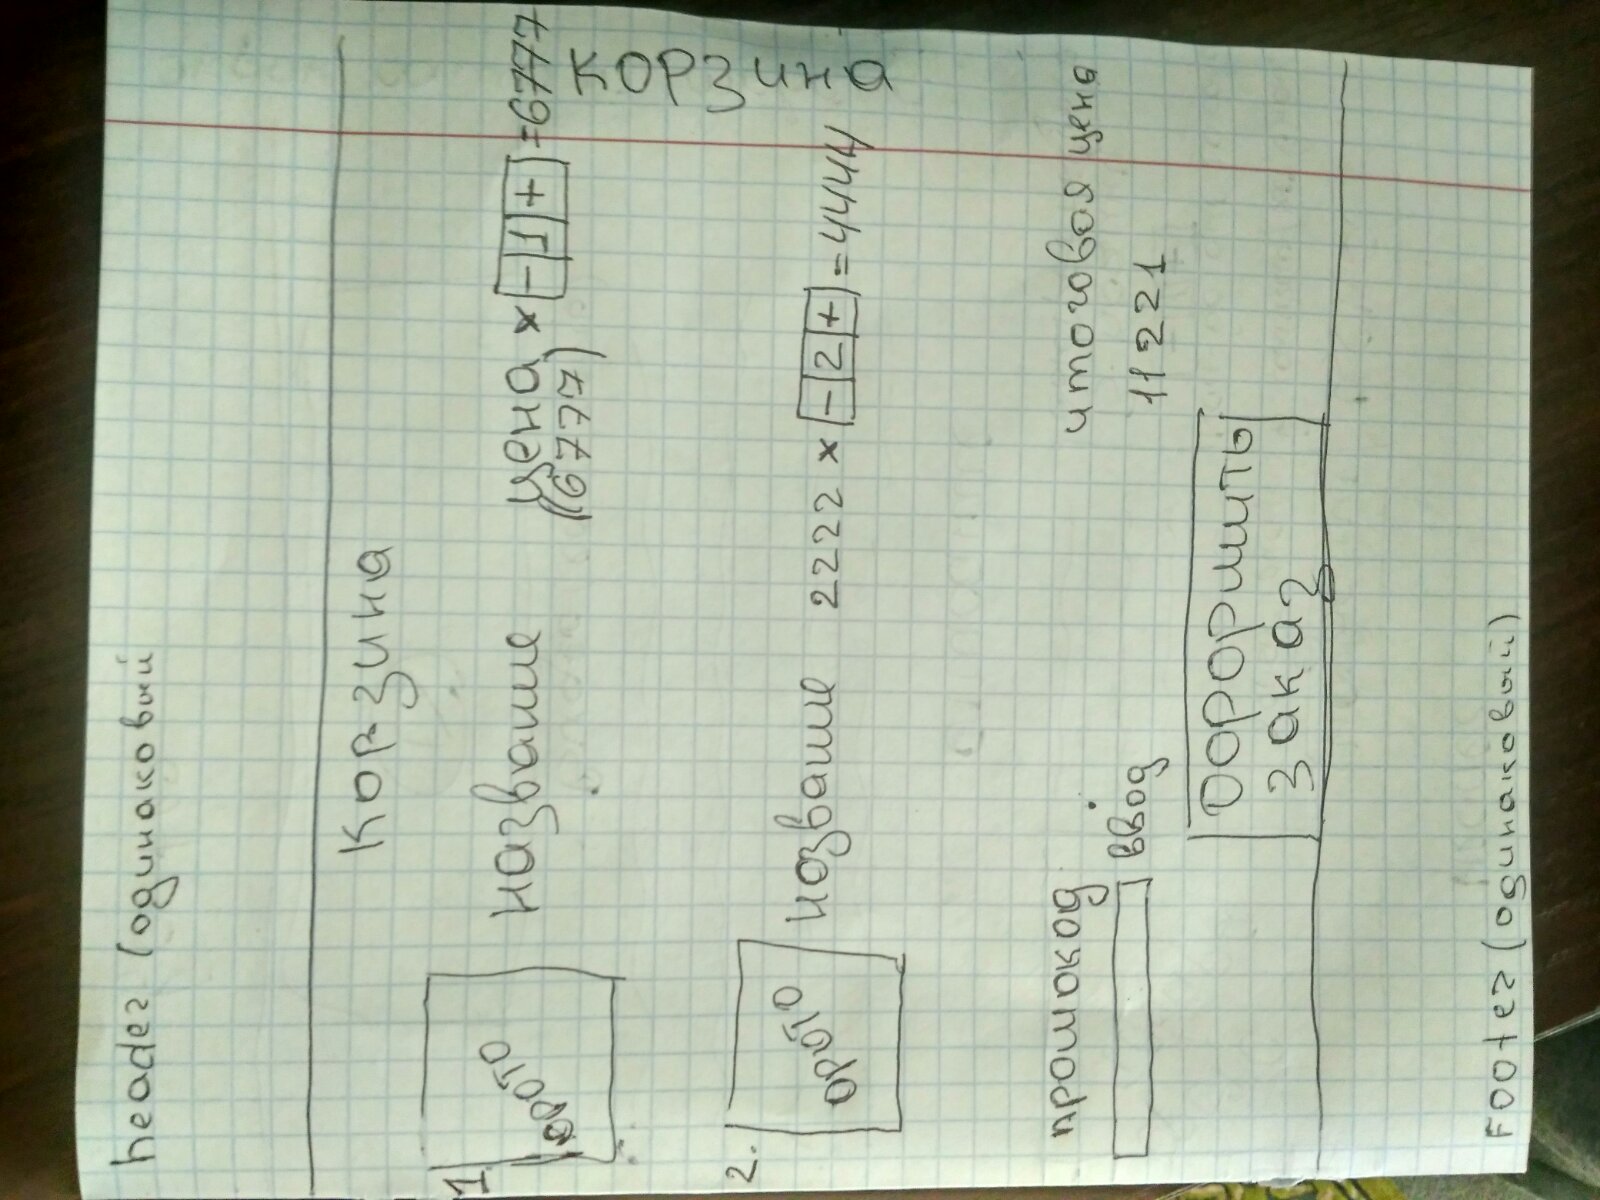 header (одинаковый
Корзина
1
фото
название
цена × - 1 + = 6777
(6777)
корзина
2.
фото
название
2222 × - 2 + = 4444
промокод
ввод
итоговая цена
11221
Оформить
заказ
Footer (одинаковый)